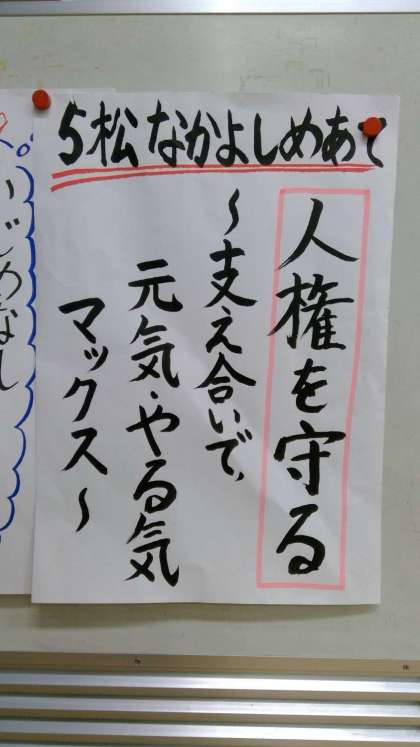 5松なかよしめあて
人権を守る
～支え合いで、
元気・やる気
マックス～
いじめなし